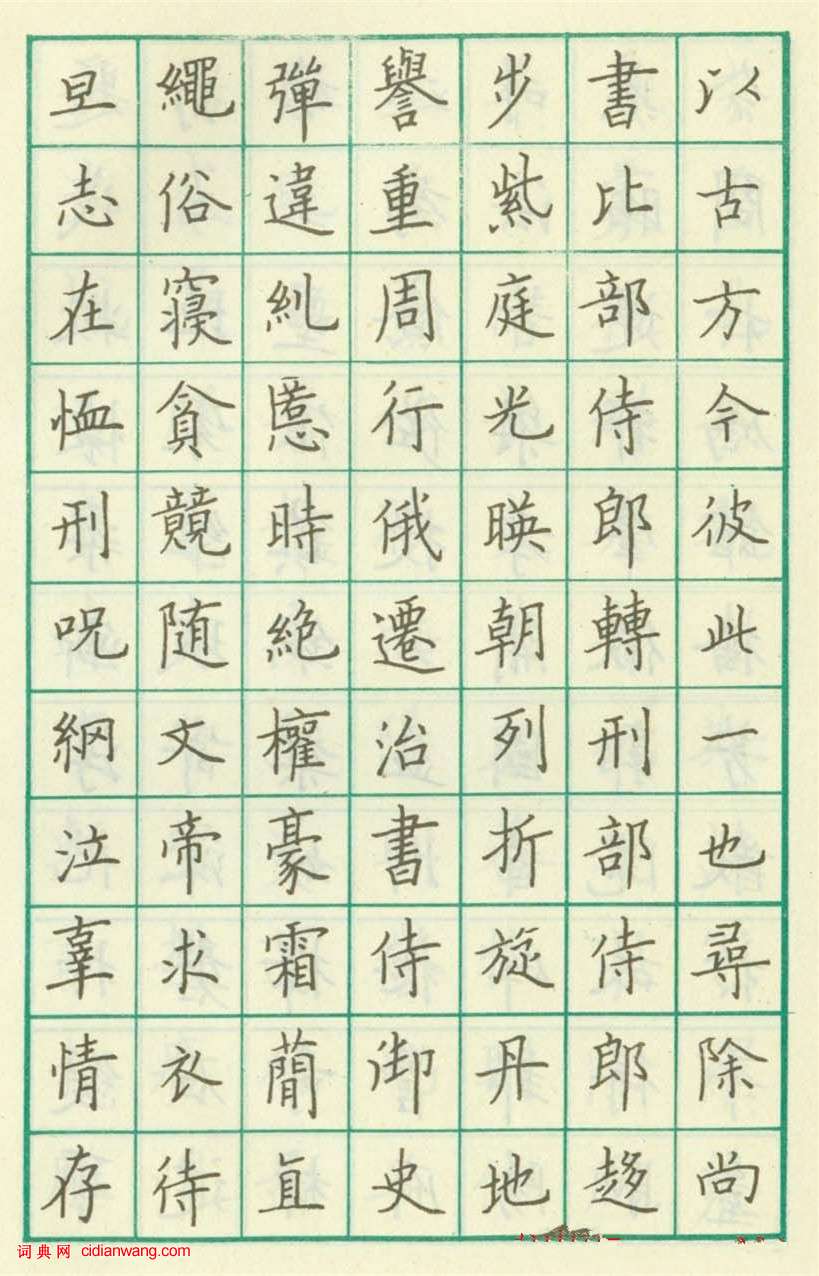 以古方今彼此一也尋除尚
書比部侍郎轉刑部侍郎趍
步紫庭光暎朝列折旋丹地
譽重周行俄遷治書侍御史
彈違糺慝時絶權豪霜簡直
繩俗寝貪競随文帝求衣待
旦志在恤刑咒網泣辜情存
词典网 cidianwang.com